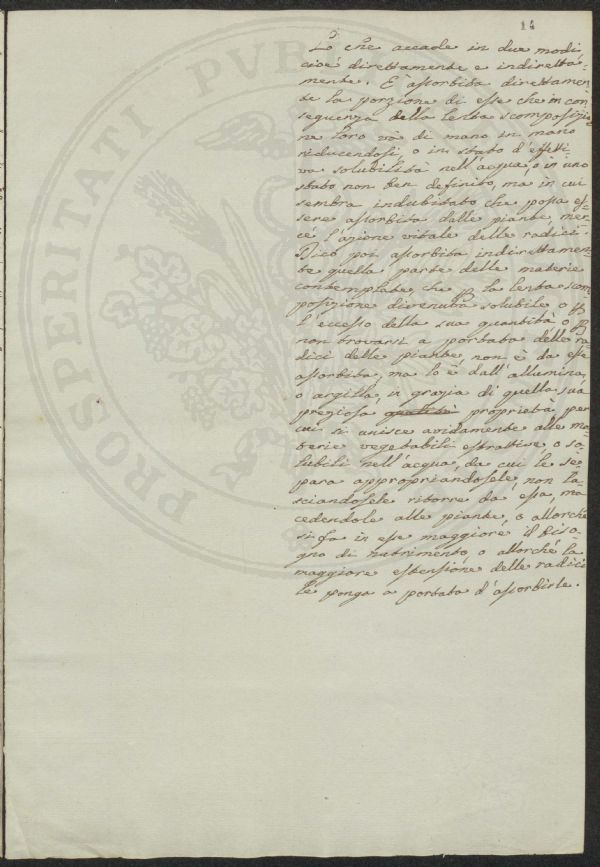 14
Lo che accade in due modi
cioè direttamente e indiretta=
mente. È assorbita direttamen
te la porzione di esse che in con
seguenza della lenta scomposizio
ne loro và di mano in mano
riducendosi, o in stato d'effetti
va solubilità nell'acqua, o in uno
stato non ben definito, ma in cui
sembra indubitato che possa es=
sere assorbita dalle piante, mer
cé l'azione vitale delle radici.
Dico poi assorbita indirettamen
te quella parte delle materie
contemplate, che p la lenta scom
posizione divenuta solubile o p
l'eccesso della sua quantità o p
non trovarsi a portata delle ra
dici delle piante, non è da esse
assorbita, ma lo è dall'allumina,
o argilla, in grazia di quella sua
preziosa proprietà per
cui si unisce avidamente alle ma
terie vegetabili estrattive, o so
lubili nell'acqua, da cui le se=
para appropriandosele, non la
sciandosele ritorre da essa, ma
cedendole alle piante, o allorché
si fa in esse maggiore il biso
gno di nutrimento, o allorché la
maggiore estensione delle radici
le ponga a portata d'assorbirle.
PROSPERITATI PUB